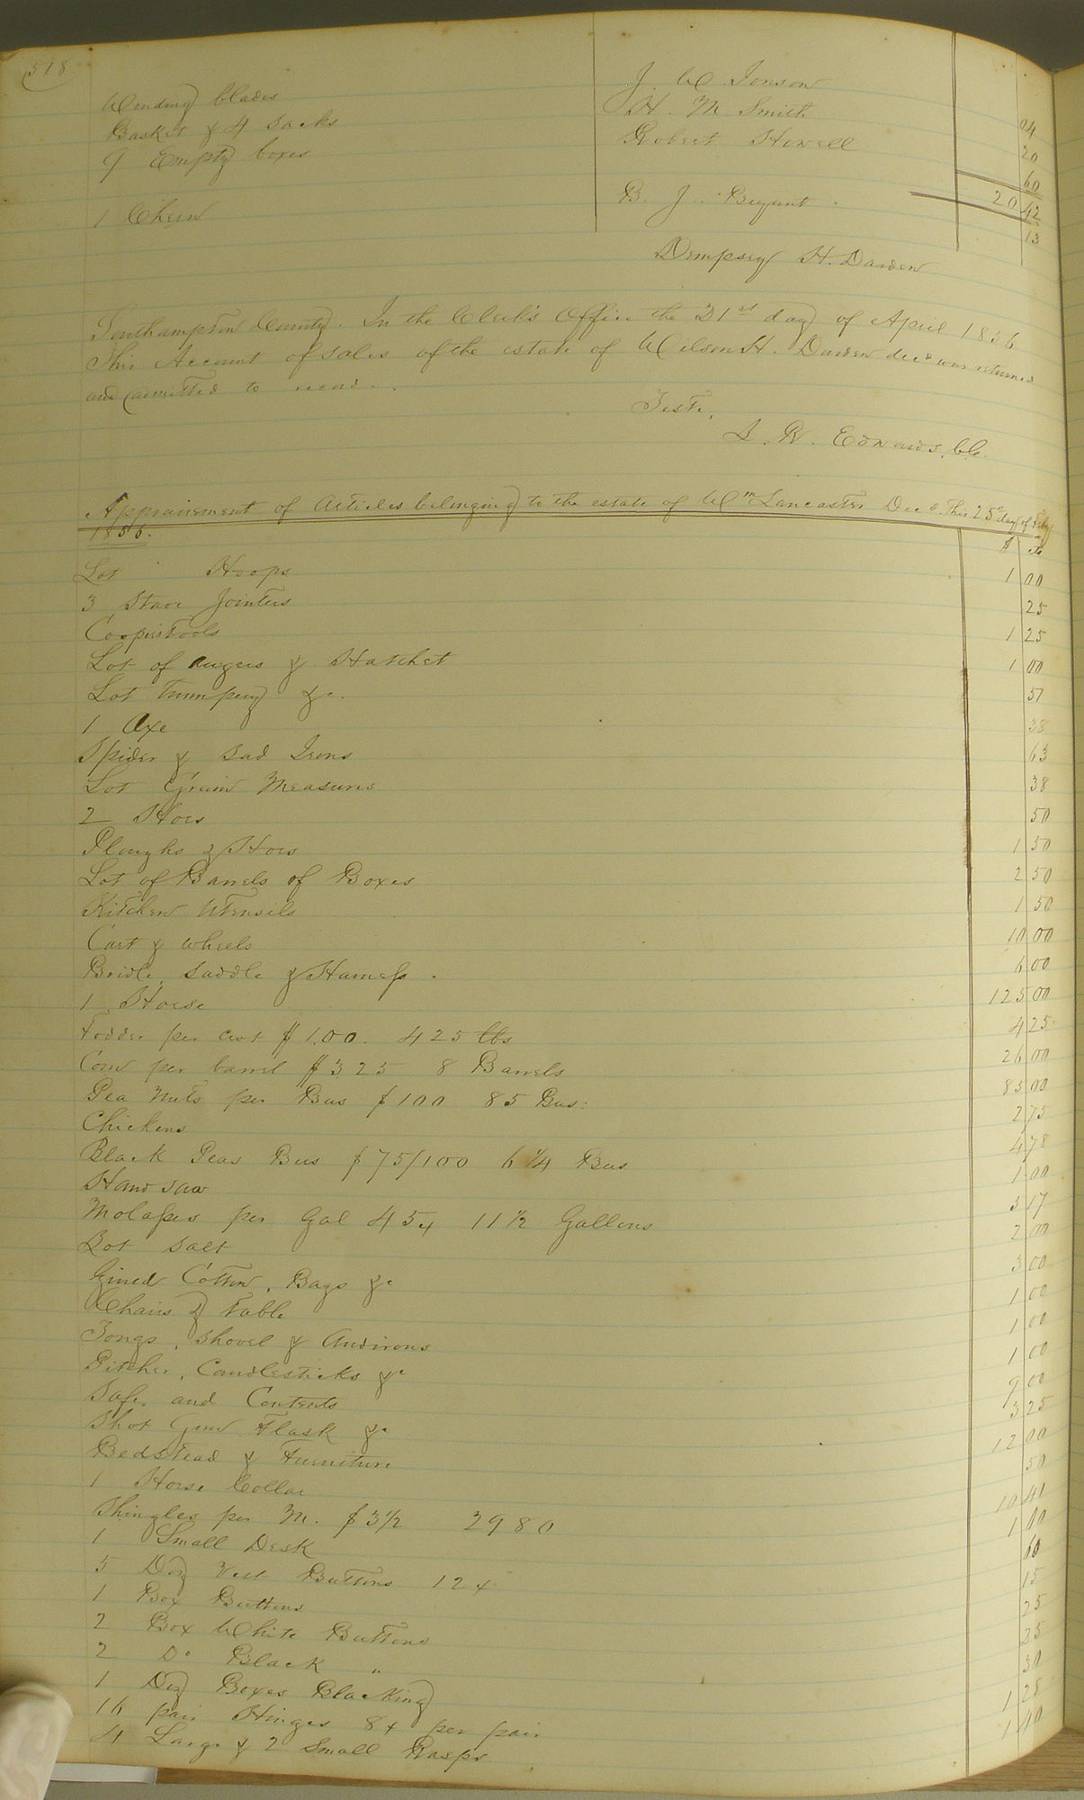 518
Winding blades J. W. Jonson 04
Basket & 4 Sacks H. M Smith 20
9 Empty boxes Robert Howell 60
20 42
1 Churn B. J. Bryant. 13
Dempsey H. Darden
Southampton County. In the Clerk's Office the 21st day of April 1856
This Account of sales of the estate of Wilson H. Darden decd was returned
and admitted to record..
Teste,
L. R. Edwards, CC.
Appraisement of Articles belonging to the estate of Wm Lancaster Decd. This 25th day of
1856. $ cts
Lot Hoops 1 00
3 Stave Jointers 25
Coopers Tools 1 25
Lot of augers & Hatchet 1 00
Lot Trumpery &c. 57
1 Axe 38
Spider & Sad Irons 63
Lot Grain Measures 38
2 Hoes 50
Ploughs & Hoes 1 50
Lot of Barrels of Boxes 2 50
Kitchen Utensils 1 50
Cart & wheels 10 00
Bridle, Saddle & Harness. 6 00
1 Horse 125 00
Fodder per cwt $1.00. 425 lbs 4 25
Corn per barrel $3 25 8 Barrels 26 00
Pea Nuts per Bus $1 00 85 Bus: 85 00
Chickens 2 75
Black Peas Bus $75/100 6 1/4 Bus 4 78
Hand saw 1 00
Molasses per Gal 45x 11 1/2 Gallons 5 17
Lot Salt 2 00
Gined Cotton, Bags &c 3 00
Chairs & Table 1 00
Tongs, Shovel & Andirons 1 00
Pitcher, Candlesticks &c 1 00
Safe and Contents 9 00
Shot Gun Flask &c 3 25
Bedstead & Furniture 12 00
1 Horse Collar 50
Shingles per M. $3 1/2 2980 10 41
1 Small Desk 1 00
5 Doz Vest Buttons 12x 60
1 Box Buttons 15
2 Box White Buttons 25
2 Do Black " 25
1 Doz Boxes Blacking 30
16 pair Hinges 8x per pair 1 28
4 Large & 2 Small Rasps 1 40